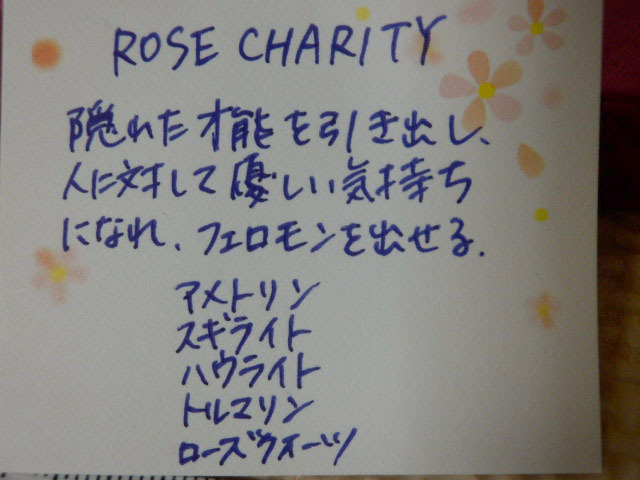 ROSE CHARITY
隠れた才能を引き出し、
人に対して優しい気持ち
になれ、フェロモンを出せる.
アメトリン
スギライト
ハウライト
トルマリン
ローズクォーツ